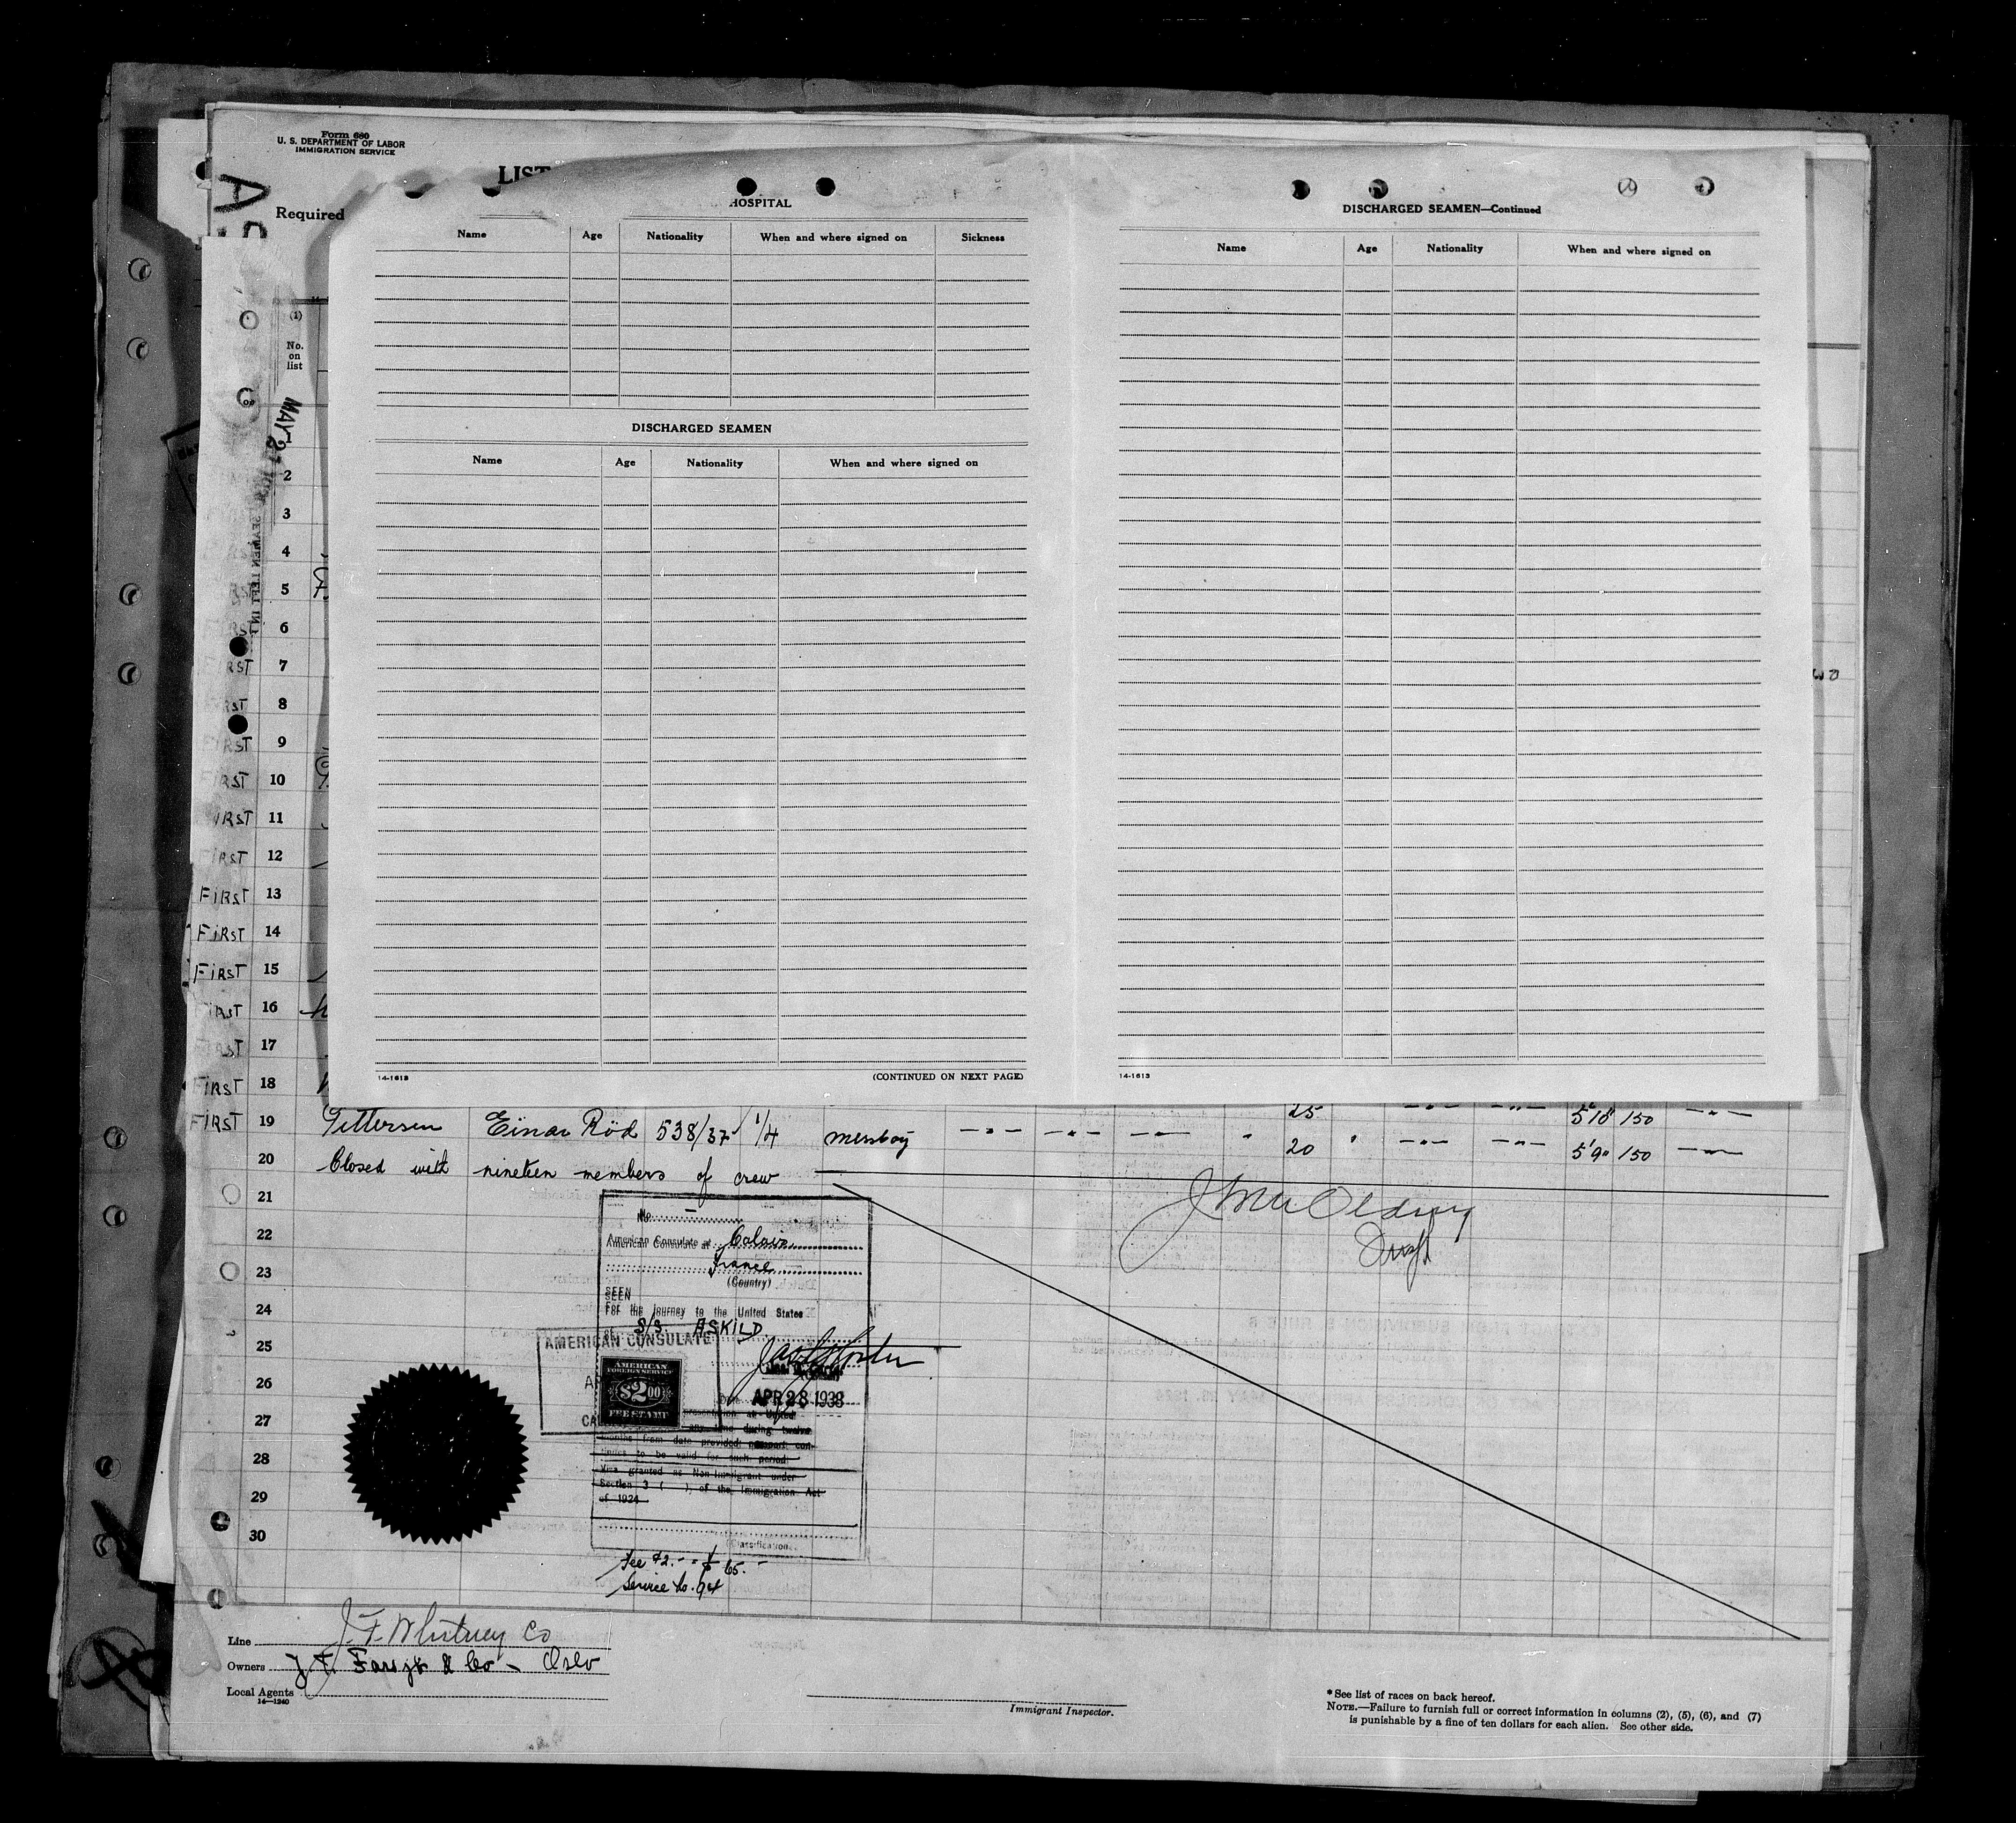 Form 680
U. S. DEPARTMENT OF LABOR
IMMIGRATION SERVICE
LIST
Required
HOSPITAL
Name Age Nationality When and where signed on Sickness
DISCHARGED SEAMEN
Name Age Nationality When and where signed on
14-1613 (CONTINUED ON NEXT PAGE)
DISCHARGED SEAMEN—Continued
Name Age Nationality When and where signed on
14-1613
(1)
No.
on
list
MAY 21
2
3
4
5
6
RST 7
RST 8
FIRST 9
FIRST 10
FIRST 11
FIRST 12
FIRST 13
FIRST 14
FIRST 15
FIRST 16
FIRST 17
FIRST 18
25 —"— —"— 5'10" 150 —"—
FIRST 19 Pettersen Einar Röd 538/37 1/4 messboy —"— —"— —"— " 20 " —"— —"— 5'9" 150 —"—
20 Closed with nineteen members of crew
21
22
23
24
25
26
27
28
29
30
No. —
American Consulate at Calais
France
(Country)
SEEN
For the journey to the United States
S/S. ASKILD
AMERICAN CONSULATE
AMERICAN
FOREIGN SERVICE
$2.00
FEE STAMP
APR 28 1938
any time during twelve
months from date provided passport con-
tinues to be valid for such period.
Visa granted as Non-Immigrant under
Section 3 ( ), of the Immigration Act
of 1924
Classification
Fee $2.-
Service No. 94
Line J. F. Whitney Co
Owners & Co — Oslo
Local Agents
14—1240
Immigrant Inspector.
* See list of races on back hereof.
NOTE.—Failure to furnish full or correct information in columns (2), (5), (6), and (7)
is punishable by a fine of ten dollars for each alien. See other side.